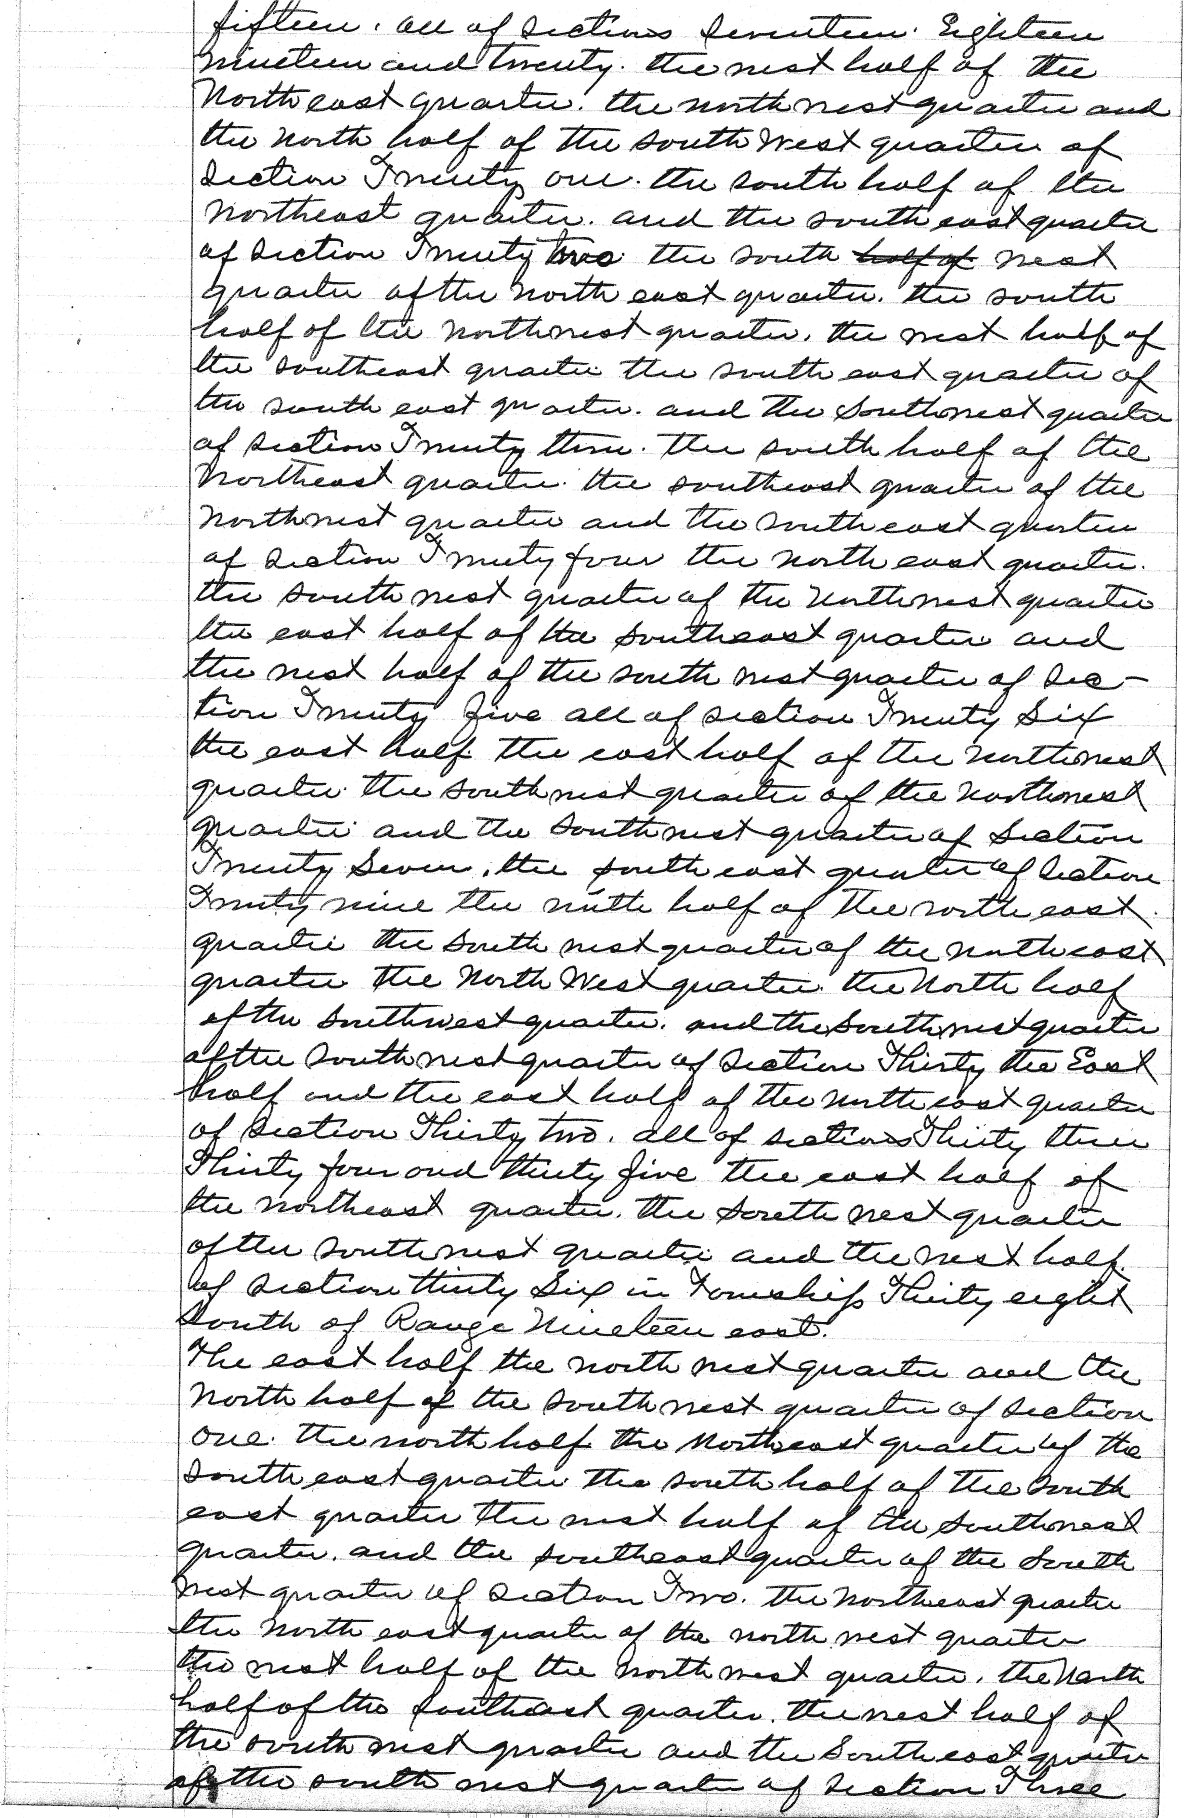 fifteen. all of sections seventeen. Eighteen
nineteen and twenty. the west half of the
North east quarter. the north west quarter and
the North half of the south West quarter of
section Twenty one. the south half of the
northeast quarter. and the south east quarter
of section Twenty two the south half of west
quarter of the North east quarter. the south
half of the Northwest quarter. the west half of
the southeast quarter the south east quarter of
the south east quarter. and the Southwest quarter
of section Twenty three. the south half of the
Northeast quarter. the southeast quarter of the
Northwest quarter and the south east quarter
of section Twenty four the north east quarter.
the south west quarter of the Northwest quarter
the east half of the southeast quarter and
the west half of the south west quarter of sec-
tion Twenty five all of section Twenty Six
the east half. the east half of the Northwest
quarter. the south west quarter of the Northwest
quarter and the Southwest quarter of Section
Twenty Seven. the south east quarter of Section
Twenty nine the north half of the north east.
quarter the South west quarter of the north east
quarter the North West quarter. the North half
of the Southwest quarter. and the South west quarter
of the South west quarter of section Thirty the East
half and the east half of the north east quarter
of section Thirty two. all of sections Thirty three
Thirty four and thirty five the east half of
the northeast quarter. the South west quarter
of the south west quarter and the west half.
of section thirty Six in Township Thirty eight
South of Range Nineteen east.
The east half the north west quarter and the
North half of the South west quarter of section
one. the north half the Northeast quarter of the
south east quarter the south half of the South
east quarter the west half of the Southwest
quarter. and the southeast quarter of the South
west quarter of section Two. the Northeast quarter
the North east quarter of the north west quarter
the west half of the north west quarter. the North
half of the southeast quarter. the west half of
the south west quarter and the South east quarter
of the south west quarter of section Three